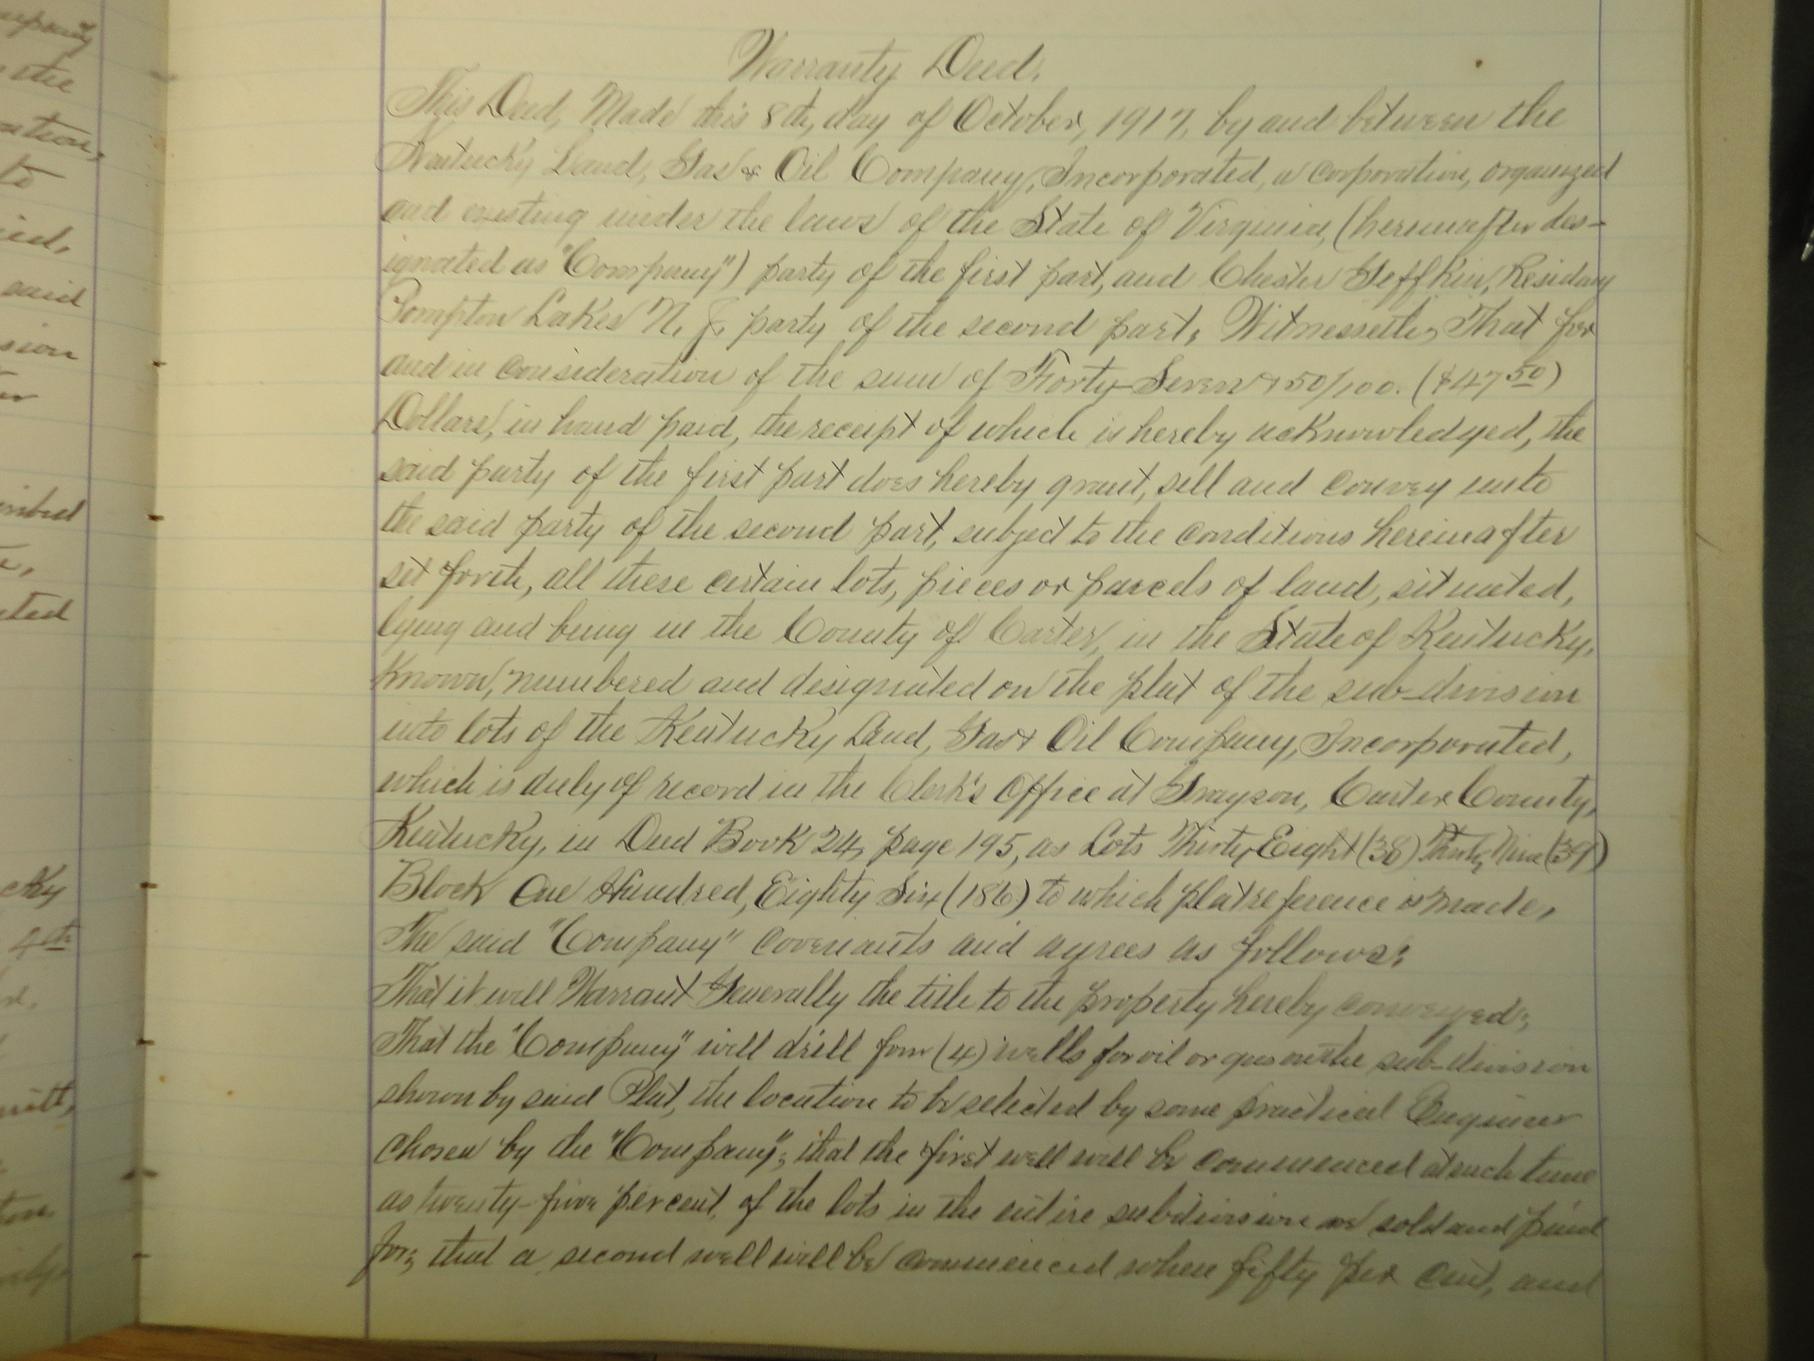 mpany
the
ration,
to
said
sion
cky
4th
Warranty Deed.
This Deed, Made this 8th, day of October, 1917, by and between the
Kentucky Land, Gas & Oil Company, Incorporated, a corporation, organized
and existing under the laws of the State of Virginia, (hereinafter des-
ignated as "Company") party of the first part, and Chester Jeffkin, Residing
Pompton Lakes N. J. party of the second part, Witnesseth, That for
and in consideration of the sum of Forty-Seven & 50/100. ($47 50)
Dollars, in hand paid, the receipt of which is hereby acknowledged, the
said party of the first part does hereby grant, sell and convey unto
the said party of the second part, subject to the conditions hereinafter
set forth, all these certain lots, pieces or parcels of land, situated,
lying and being in the County of Carter, in the State of Kentucky,
known, numbered and designated on the plat of the sub-division
into lots of the Kentucky Land, Gas & Oil Company, Incorporated,
which is duly of record in the Clerk's Office at Grayson, Carter County,
Kentucky, in Deed Book 24, page 195, as Lots Thirty Eight (38) Thirty Nine (39)
Block One Hundred, Eighty Six (186) to which plat reference is made,
The said "Company" covenants and agrees as follows:
That it will Warrant Generally the title to the property hereby conveyed;
That the "Company" will drill four (4) wells for oil or gas on the sub-division
shown by said Plat, the location to be selected by some practical Engineer
chosen by the "Company"; that the first well will be commenced at such time
as twenty-five per cent, of the lots in the entire subdivision are sold and paid
for; that a second well will be commenced when fifty per cent, and